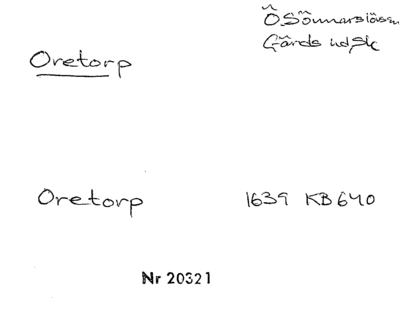 Oretorp
Gärds hd, Sk
Oretorp 1639 KB 640
Nr 20321